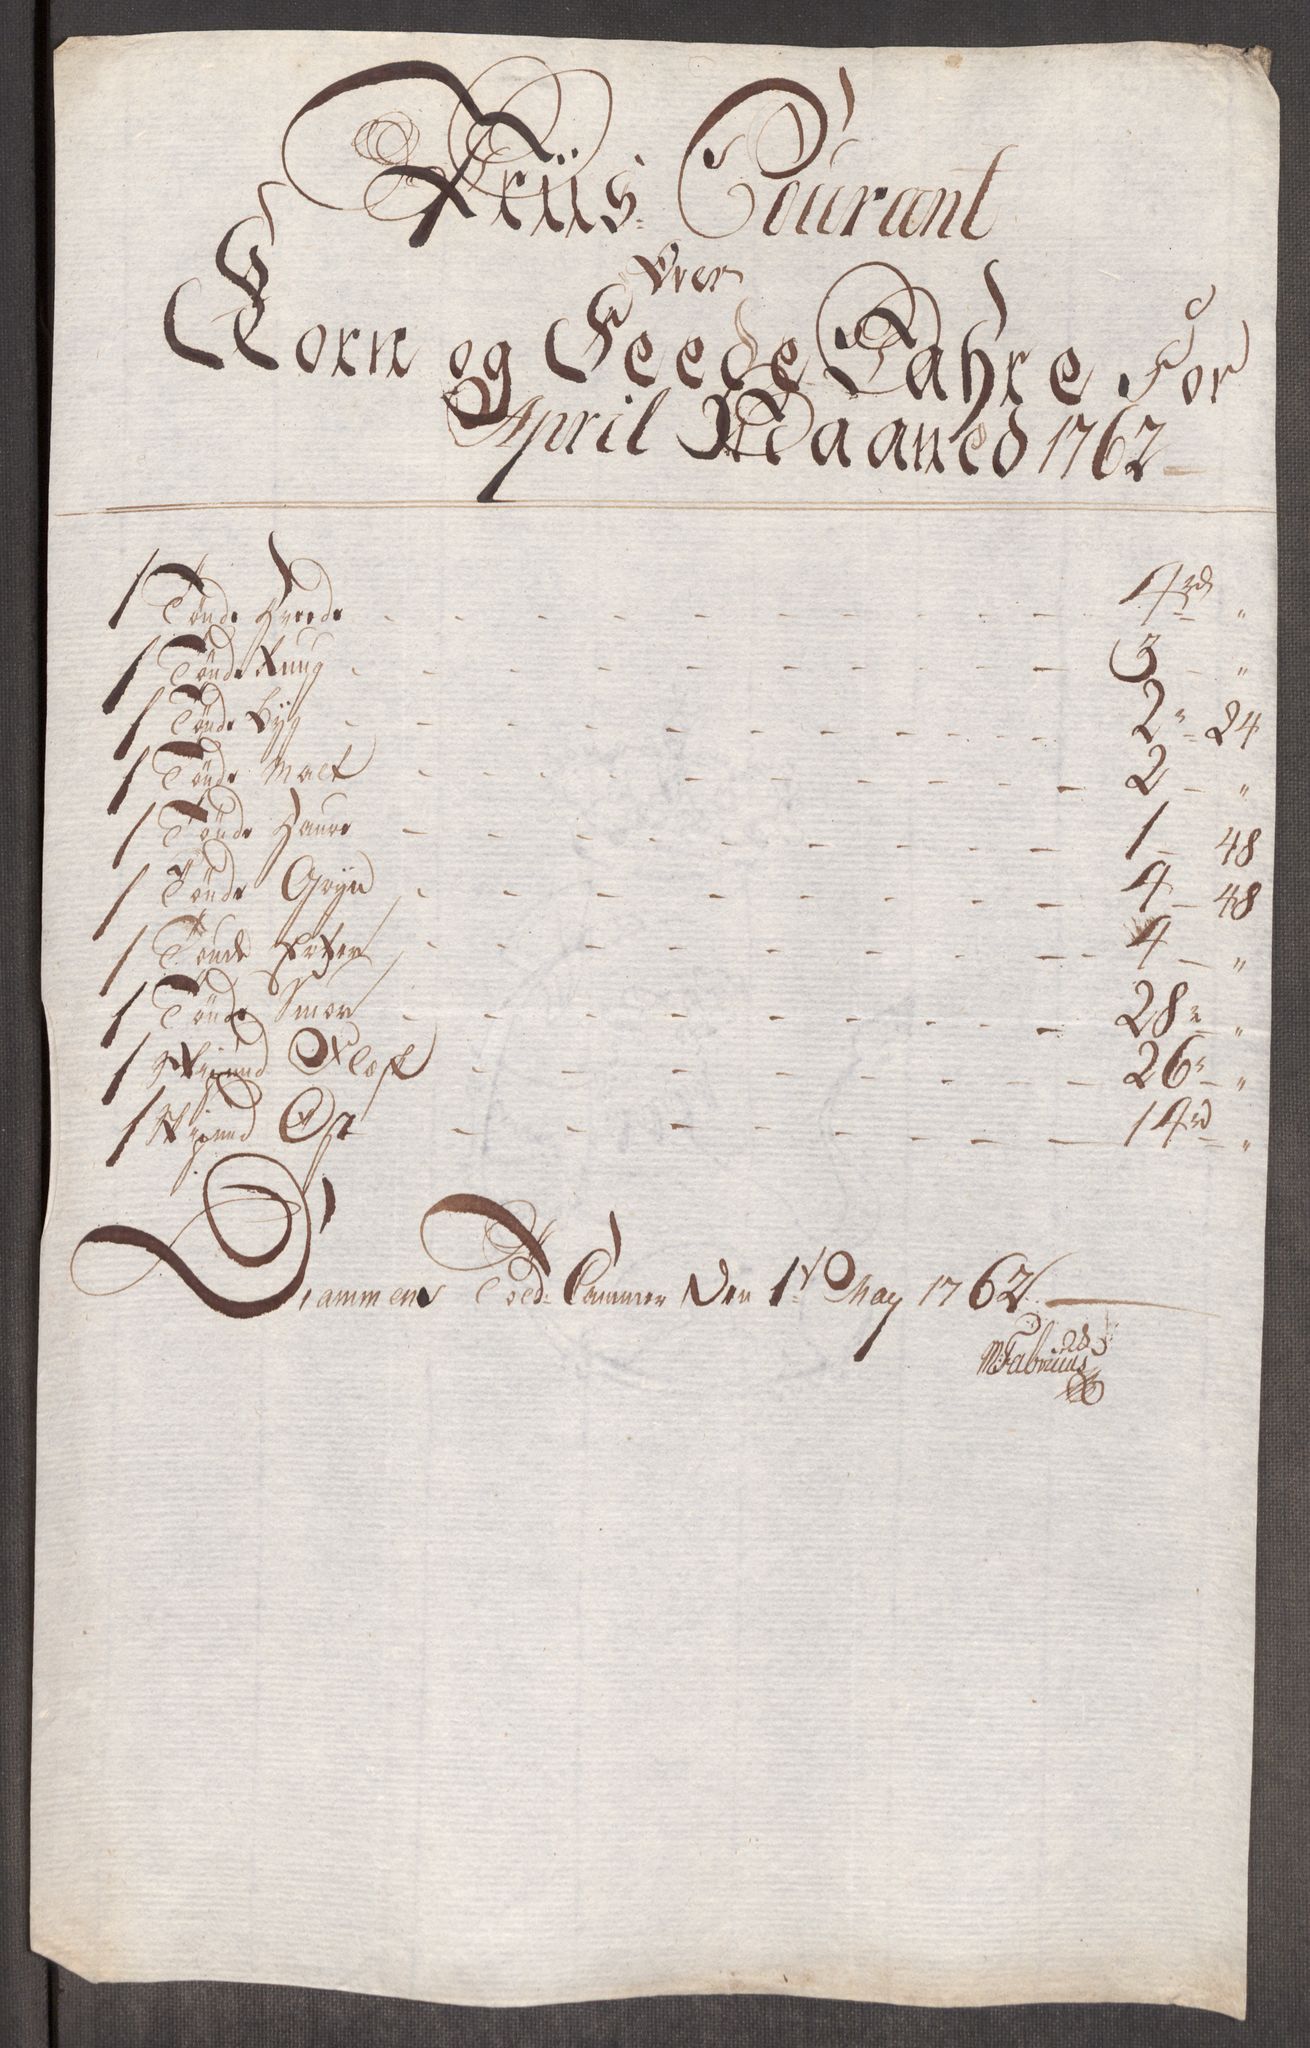 Priis Courant
Over
Korn og Feede Vahre For
April Maaned 1762
1 Tønde Hvede - - - 4 rd "
1 Tønde Ruug - - - 3 - "
1 Tønde Byg - - - 2 " 24
1 Tønde Malt - - - 2 - "
1 Tønde Haure - - - 1 - 48
1 Tønde Gryn - - - 4 - 48
1 Tønde Erter - - - 4 - "
1 Tønde Smør - - - 28 " "
1 Skipund Flæsk - - - 26 " "
1 Skipund Ost - - - 14 rd "
Drammens Told Cammer Den 1t May 1762
M: Fabricius